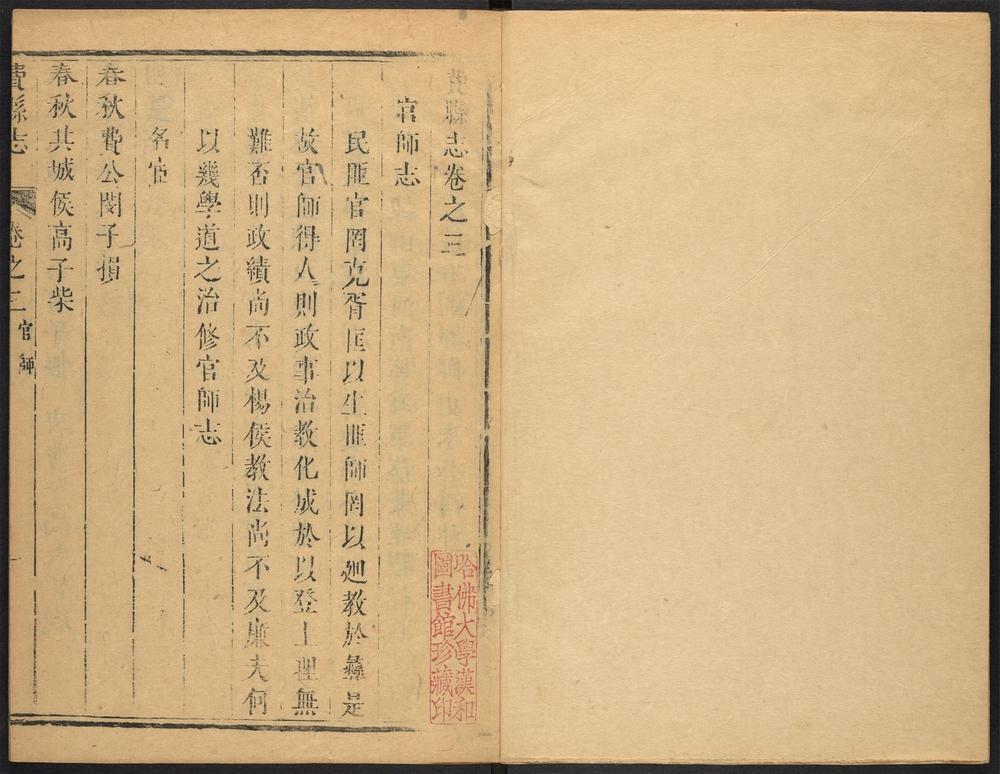 費縣志卷之三
官師志
民匪官罔克胥匡以生匪師罔以廸教於彝是
故官師得人則政事治教化成於以登上理無
難否則政績尚不及楊侯教法尚不及廉夫何
以幾學道之治修官師志
名宦
春秋費公閔子損
春秋共城侯高子柴
費縣志 卷之三 官師
哈佛大學漢和
圖書館珍藏印